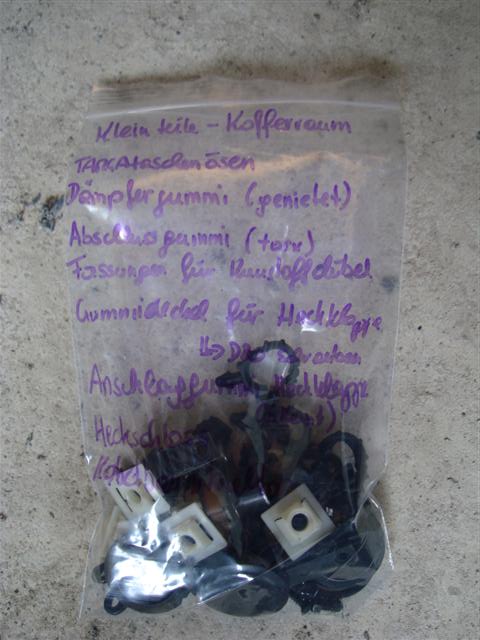 Kleinteile - Kofferraum
TARGAtaschenösen
Dämpfergummi (genietet)
Abschlussgummi (torx)
Fassungen für Kunstoffdübel
Gummideckel für Heckklappe
Anschlaggummi Heckklappe
Heckschloss